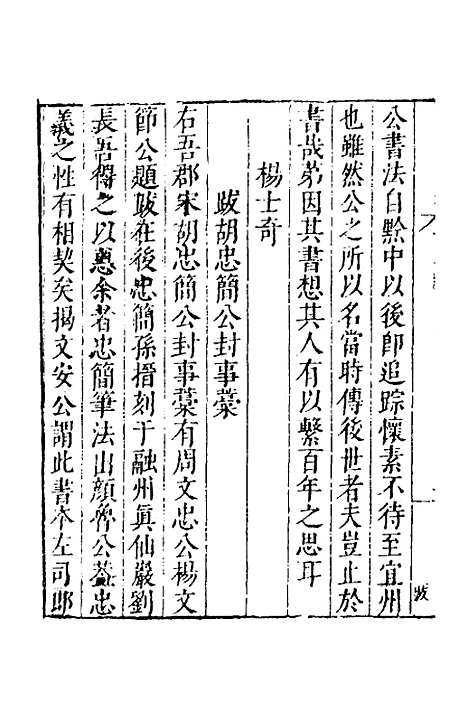 公書法自黔中以後卽追踪懷素不待至宜州
也雖然公之所以名當時傳後世者夫豈止於
書哉第因其書想其人有以繫百年之思耳
楊士奇
跋胡忠簡公封事藁
右吾郡宋胡忠簡公封事藁有周文忠公楊文
節公題跋在後忠簡孫搢刻于融州眞仙巖劉
長吾得之以惠余者忠簡筆法出顏魯公葢忠
義之性有相契矣揭文安公謂此書本左司郎
跋